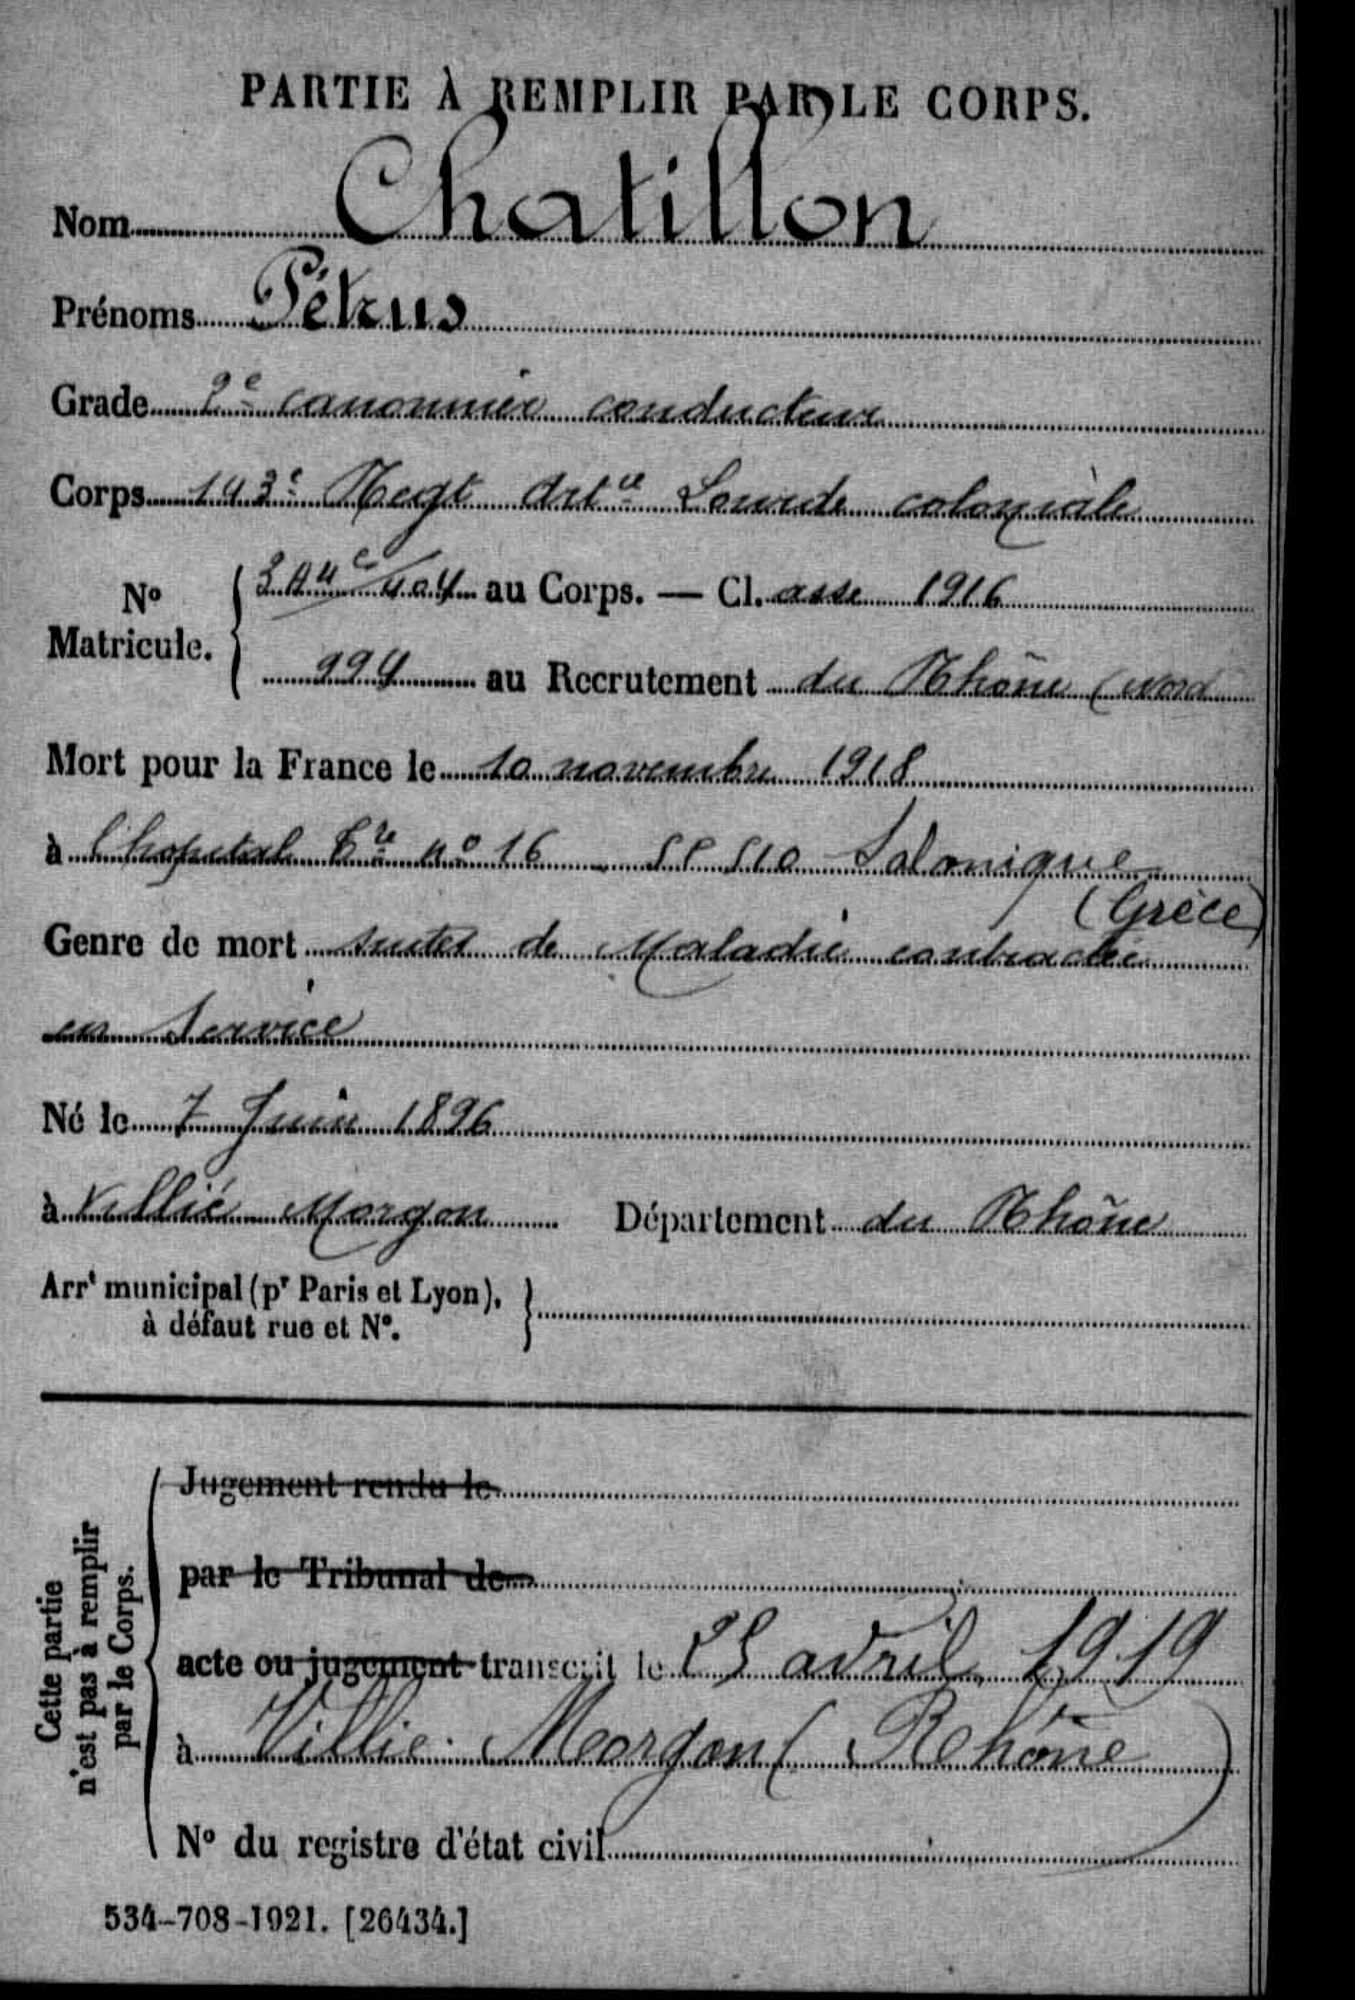 PARTIE À REMPLIR PAR LE CORPS.
Nom Chatillon
Prénoms Pétrus
Grade 2e canonnier conducteur
Corps 143e Regt Artie Lourde coloniale
No Matricule. au Corps. — Cl. asse 1916
994 au Recrutement du Rhône (Nord
Mort pour la France le 10 novembre 1918
à l'hopital tre no 16 SP 510 Salonique
(Grèce)
Genre de mort suites de Maladie contractée
en Service
Né le 7 Juin 1896
à Villié Morgon Département du Rhône
Arrt municipal (pr Paris et Lyon),
à défaut rue et No.
Cette partie
n'est pas à remplir
par le Corps.
Jugement rendu le
par le Tribunal de
acte ou jugement transcrit le 25 avril 1919
à Villié-Morgon (Rhône)
No du registre d'état civil
534-708-1921. [26434.]